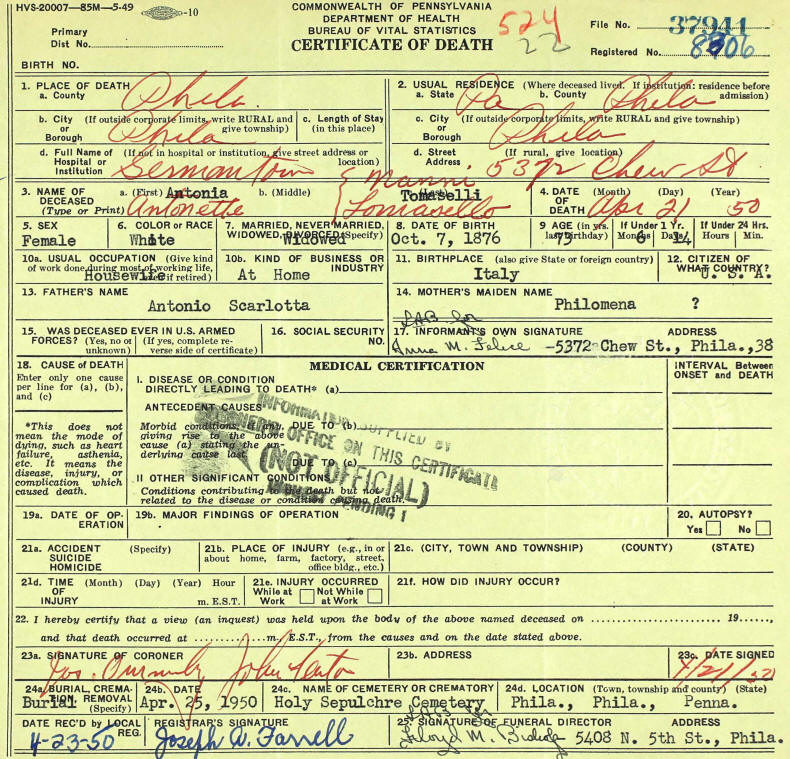 HVS-20007—85M—5-49 -10
COMMONWEALTH OF PENNSYLVANIA
DEPARTMENT OF HEALTH
BUREAU OF VITAL STATISTICS
CERTIFICATE OF DEATH
524
22
Primary
Dist No.
File No. 37941
Registered No. 8306
BIRTH NO.
1. PLACE OF DEATH
a. County Phila.
2. USUAL RESIDENCE (Where deceased lived. If institution: residence before admission)
a. State Pa b. County Phila
b. City (If outside corporate limits, write RURAL and give township)
or
Borough Phila
c. Length of Stay
(in this place)
c. City (If outside corporate limits, write RURAL and give township)
or
Borough Phila
d. Full Name of (If not in hospital or institution, give street address or location)
Hospital or
Institution Germantown
d. Street (If rural, give location)
Address 5372 Chew St
3. NAME OF DECEASED
(Type or Print)
a. (First) Antonia b. (Middle) c. (Last) Tomaselli
Antonette { Manni
Tomasello
4. DATE OF DEATH (Month) (Day) (Year)
Apr 21 50
5. SEX
Female
6. COLOR OR RACE
White
7. MARRIED, NEVER MARRIED, WIDOWED, DIVORCED (Specify)
Widowed
8. DATE OF BIRTH
Oct. 7, 1876
9 AGE (in yrs. last birthday)
73
If Under 1 Yr.
Months Days
6 14
If Under 24 Hrs.
Hours Min.
10a. USUAL OCCUPATION (Give kind of work done during most of working life, even if retired)
Housewife
10b. KIND OF BUSINESS OR INDUSTRY
At Home
11. BIRTHPLACE (also give State or foreign country)
Italy
12. CITIZEN OF WHAT COUNTRY?
U. S. A.
13. FATHER'S NAME
Antonio Scarlotta
14. MOTHER'S MAIDEN NAME
Philomena ?
15. WAS DECEASED EVER IN U.S. ARMED FORCES? (Yes, no or unknown) (If yes, complete reverse side of certificate)
16. SOCIAL SECURITY NO.
17. INFORMANT'S OWN SIGNATURE ADDRESS
Anna M. Felice -5372 Chew St., Phila.,38
18. CAUSE OF DEATH
Enter only one cause per line for (a), (b), and (c)
*This does not mean the mode of dying, such as heart failure, asthenia, etc. It means the disease, injury, or complication which caused death.
MEDICAL CERTIFICATION
INTERVAL Between ONSET and DEATH
I. DISEASE OR CONDITION
DIRECTLY LEADING TO DEATH* (a)
ANTECEDENT CAUSES
Morbid conditions, if any, giving rise to the above cause (a) stating the underlying cause last.
DUE TO (b)
DUE TO (c)
II OTHER SIGNIFICANT CONDITIONS
Conditions contributing to the death but not related to the disease or condition causing death.
INFORMATION SUPPLIED BY
CORONERS OFFICE ON THIS CERTIFICATE
(NOT OFFICIAL)
PENDING !
19a. DATE OF OPERATION
19b. MAJOR FINDINGS OF OPERATION
20. AUTOPSY?
Yes No
21a. ACCIDENT (Specify)
SUICIDE
HOMICIDE
21b. PLACE OF INJURY (e.g., in or about home, farm, factory, street, office bldg., etc.)
21c. (CITY, TOWN AND TOWNSHIP) (COUNTY) (STATE)
21d. TIME (Month) (Day) (Year) Hour
OF
INJURY m. E.S.T.
21e. INJURY OCCURRED
While at Work Not While at Work
21f. HOW DID INJURY OCCUR?
22. I hereby certify that a view (an inquest) was held upon the body of the above named deceased on .......... 19......,
and that death occurred at ..........m. E.S.T., from the causes and on the date stated above.
23a. SIGNATURE OF CORONER
23b. ADDRESS
23c. DATE SIGNED
4/21/50
24a. BURIAL, CREMATION REMOVAL (Specify)
Burial
24b. DATE
Apr. 25, 1950
24c. NAME OF CEMETERY OR CREMATORY
Holy Sepulchre Cemetery
24d. LOCATION (Town, township and county) (State)
Phila., Phila., Penna.
DATE REC'D BY LOCAL REG.
4-23-50
REGISTRAR'S SIGNATURE
Joseph A. Farrell
25. SIGNATURE OF FUNERAL DIRECTOR ADDRESS
Lloyd M. 5408 N. 5th St., Phila.